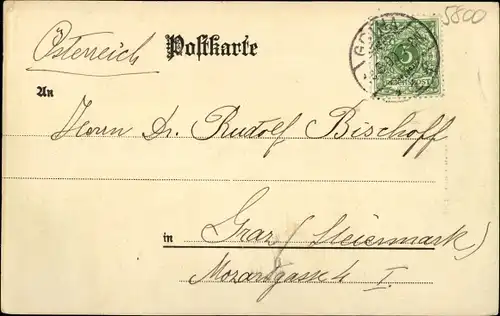 5800
Österreich
Postkarte
GOTHA
An
Herrn Dr. Rudolf Bischoff
in Graz (Steiermark)
Mozartgasse 4 I.